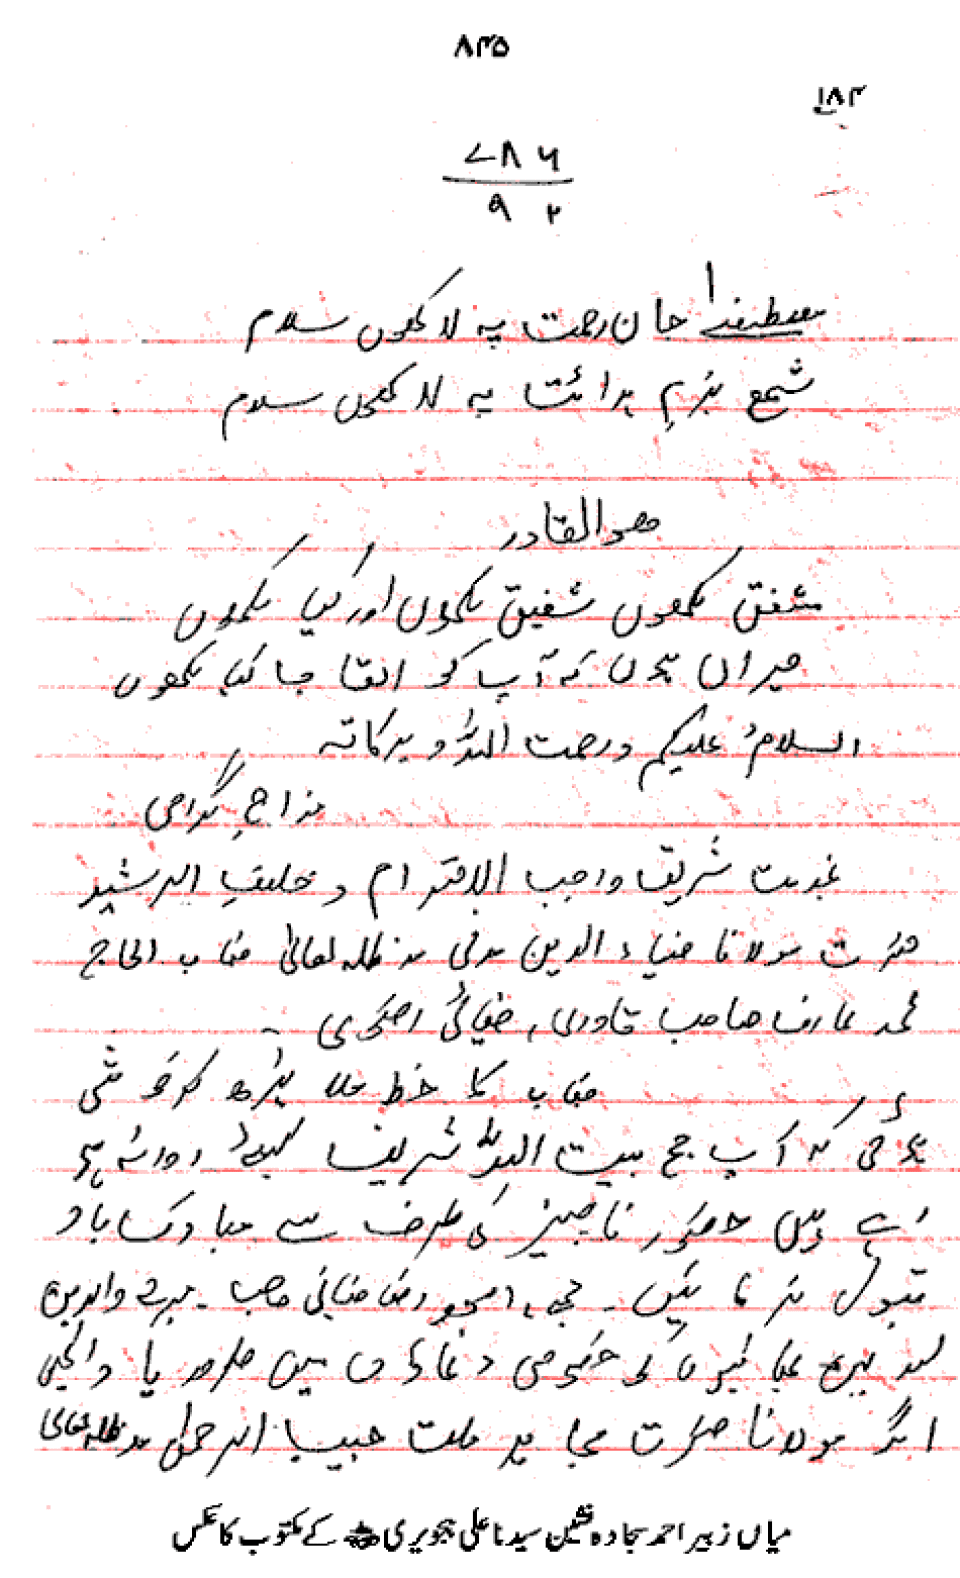 ۸۳۵
۱۸۳
۷۸۶
۹۲
مصطفےٰ جان رحمت پہ لاکھوں سلام
شمع بزمِ ہدائت پہ لاکھوں سلام
ھوالقادر
مشفق لکھوں شفیق لکھوں اور کیا لکھوں
حیراں ہوں کہ آپ کو القا جا کیا لکھوں
السلامُ علیکم ورحمت اللہ وبرکاتہ
مزاجِ گرامی
بخدمت شریف واجب الاحترام و خلیفہ الرشید
حضرت مولانا ضیاء الدین مدنی مدظلہ تعالیٰ جناب الحاج
محمد عارف صاحب قادری، ضیائی رضوی ۔
جناب کا خط ملا پڑھ کر خوشی
ہوئی کہ آپ حج بیت اللہ شریف کیلئے روانہ ہو
رہے ہیں حضور ناچیز کی طرف سے مبارک باد
قبول فرمائیں ۔ مجھے، امجد رضا ضیائی صاحب ۔ میرے والدین
اور بہن بھائیوں کو خصوصی دعاؤں میں ضرور یاد
اگر مولانا حضرت مجاہد ملت حبیب الرحمٰن مدظلہ تعالیٰ
میاں زبیر احمد سجادہ نشین سیدنا علی ہجویری کے مکتوب کا عکس